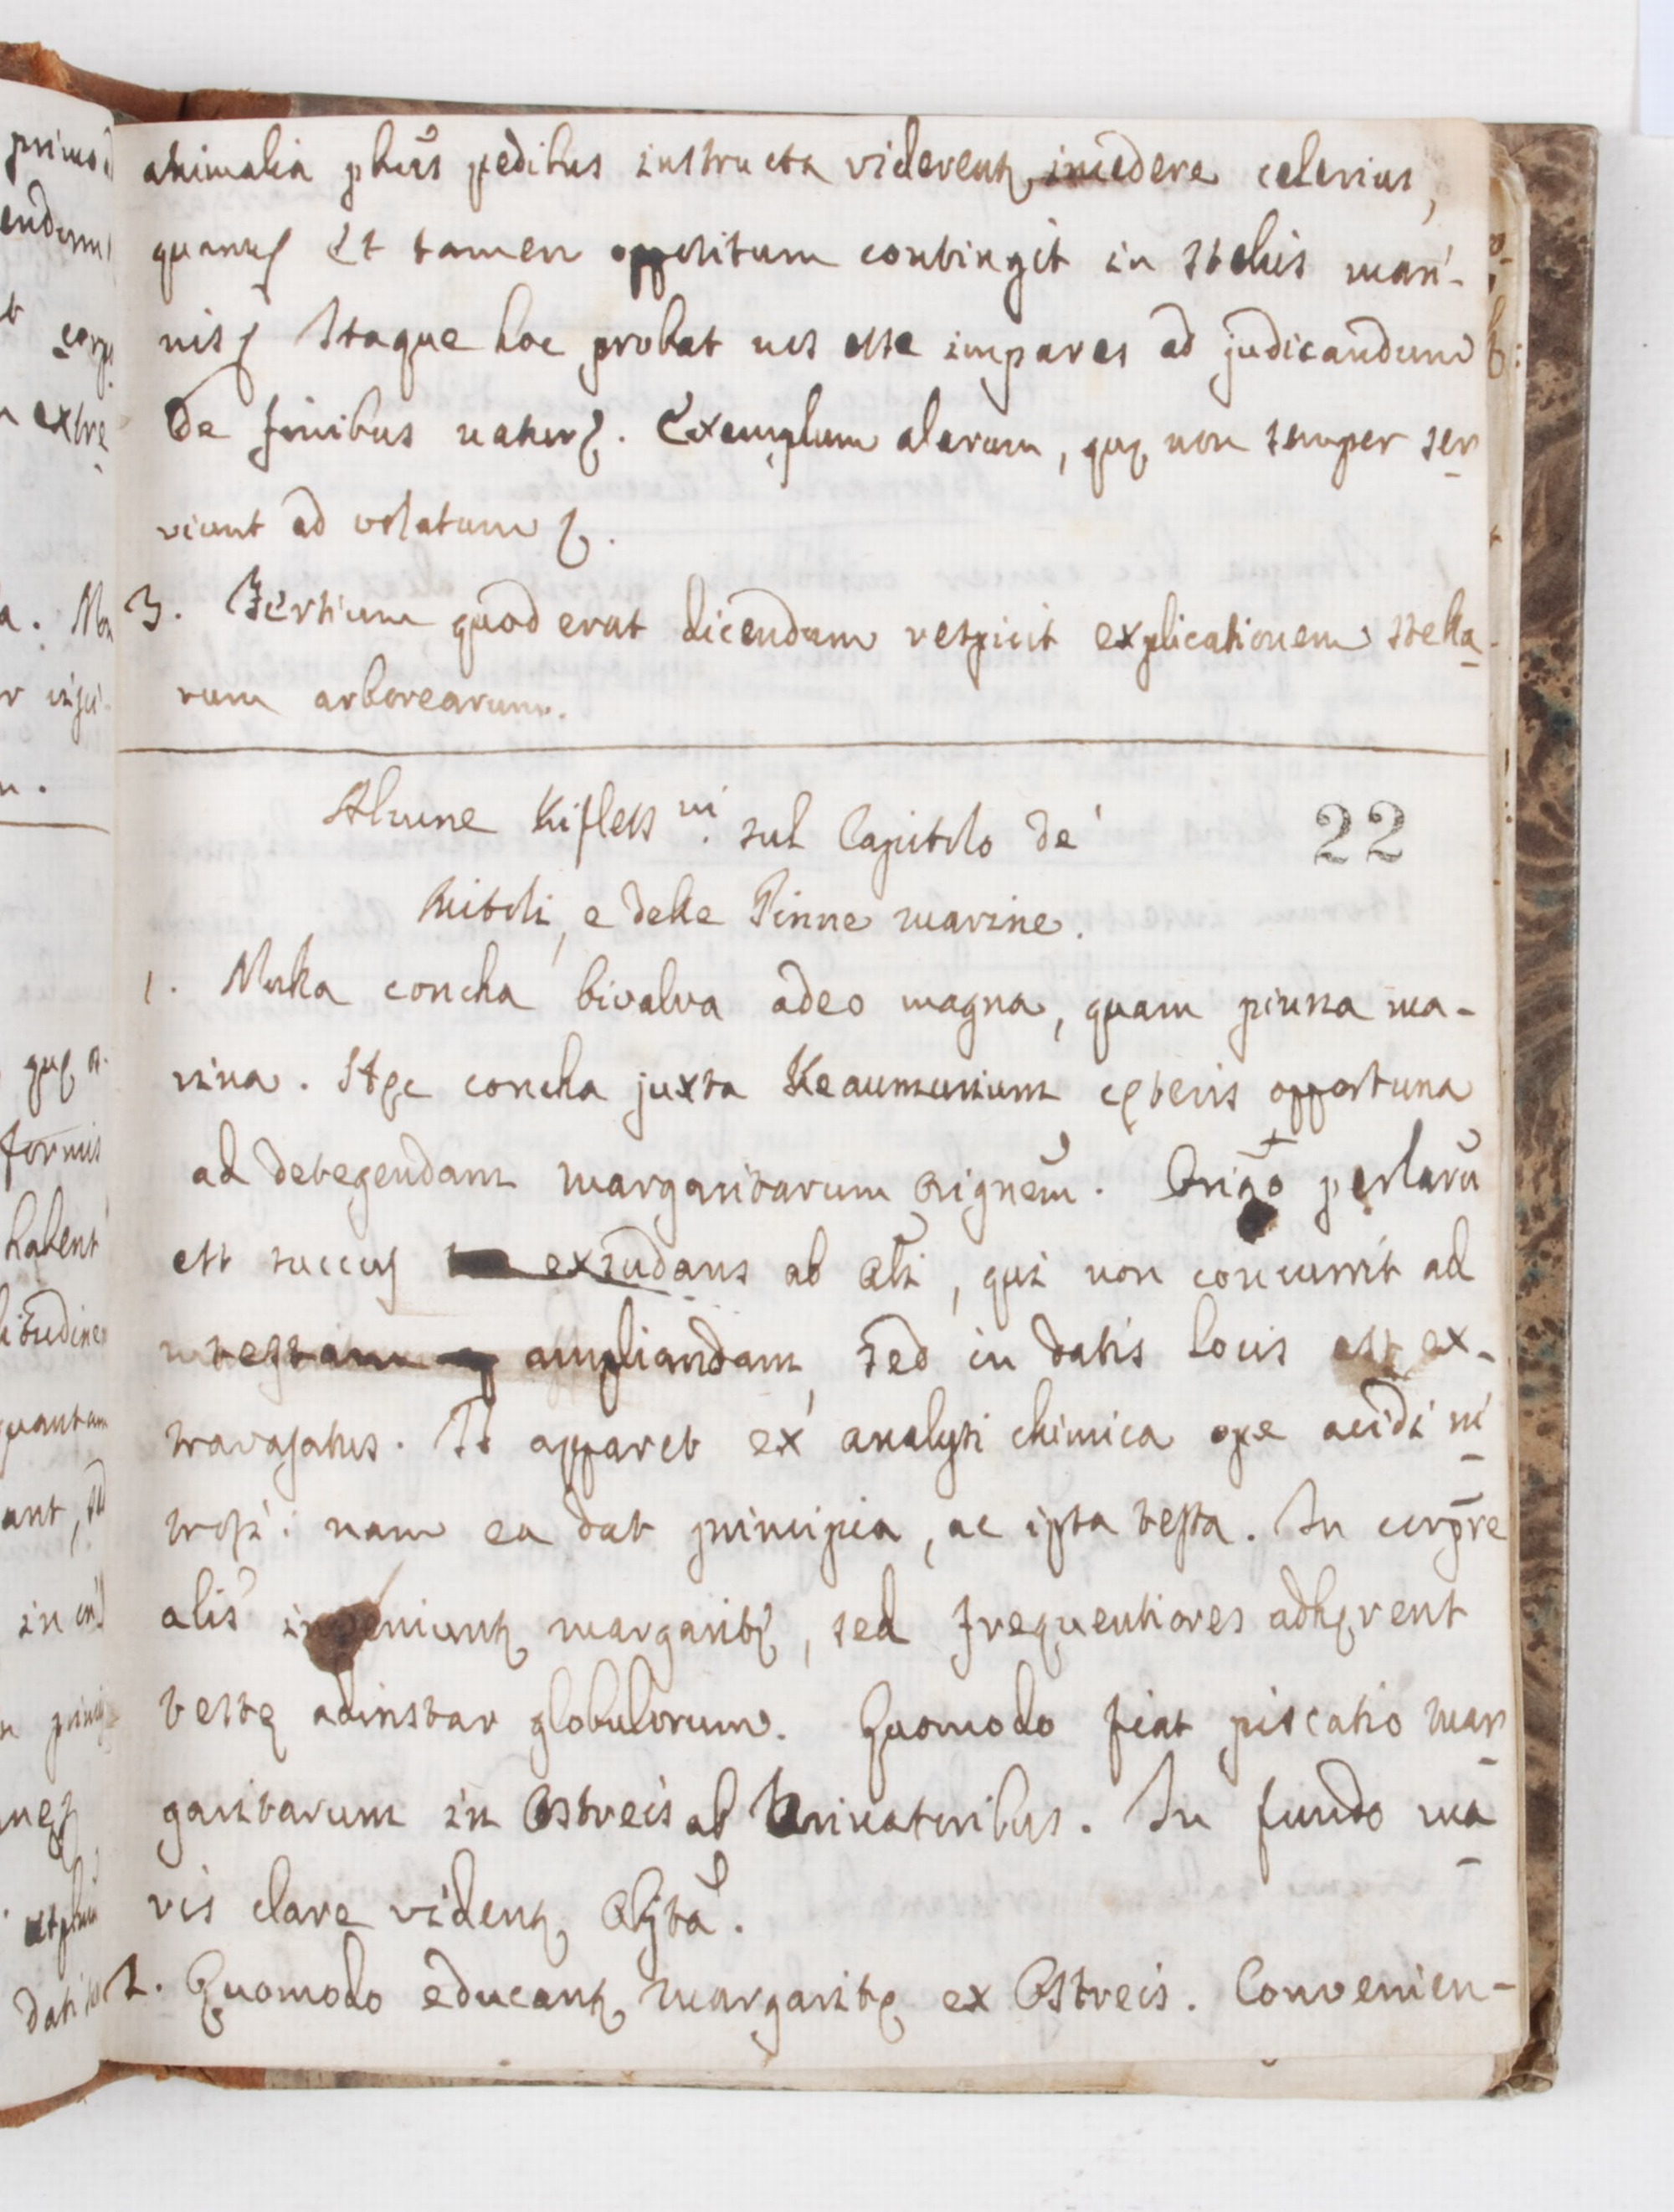 animalia plūs pedibus instructa viderentꝫ incedere celerius,
quamꝫ Et tamen oppositum contingit in stellis mari-
nisꝫ Itaque hoc probat nos esse impares ad judicandum
de finibus naturę. Exemplum alarum, quę non semper ser
viunt ad volatum ꝫ.
3. Tertium quod erat dicendum respicit explicationem stella
rum arborearum.
Alcune Rifless.ni sul Capitolo de'
22
Mitoli, e delle Pinne marine.
1. Nulla concha bivalva adeo magna, quam pinna ma-
rina. Hęc concha juxta Reaumurium cęteris opportuna
ad detegendam margaritarum orignem̄. Origo perlarū
est succus exsudans ab Ali, qui non concurrit ad
testam ampliandam, sed in datis locis est ex-
travasatus. Id apparet ex analysi chimica ope acidi ni
trosi: nam ea dat principia, ac ipsa testa. In corp̄re
alis inveniuntꝫ margaritę, sed frequentiores adhęrent
testę adinstar globulorum. Quomodo fiat piscatio mar
garitarum in Ostreis ab Urinatoribus. In fundo ma
ris clare videntꝫ
2. Quomodo educantꝫ margaritę ex Ostreis. Convenien-